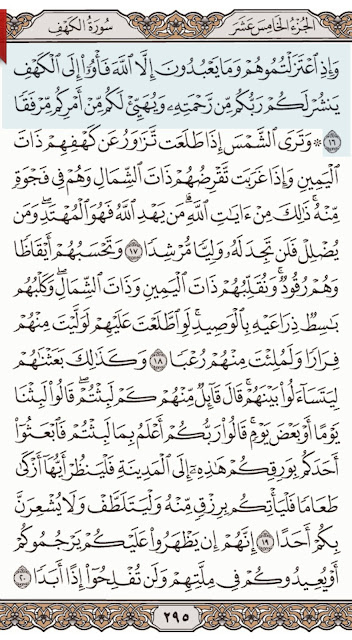 الجُزْءُ الخَامِسَ عَشَرَ سُورَةُ الكَهْفِ
وَإِذِ ٱعْتَزَلْتُمُوهُمْ وَمَا يَعْبُدُونَ إِلَّا ٱللَّهَ فَأْوُۥٓا۟ إِلَى ٱلْكَهْفِ
يَنشُرْ لَكُمْ رَبُّكُم مِّن رَّحْمَتِهِۦ وَيُهَيِّئْ لَكُم مِّنْ أَمْرِكُم مِّرْفَقًا
١٦ ۞ وَتَرَى ٱلشَّمْسَ إِذَا طَلَعَت تَّزَٰوَرُ عَن كَهْفِهِمْ ذَاتَ
ٱلْيَمِينِ وَإِذَا غَرَبَت تَّقْرِضُهُمْ ذَاتَ ٱلشِّمَالِ وَهُمْ فِى فَجْوَةٍ
مِّنْهُ ۚ ذَٰلِكَ مِنْ ءَايَٰتِ ٱللَّهِ ۗ مَن يَهْدِ ٱللَّهُ فَهُوَ ٱلْمُهْتَدِ ۖ وَمَن
يُضْلِلْ فَلَن تَجِدَ لَهُۥ وَلِيًّا مُّرْشِدًا ١٧ وَتَحْسَبُهُمْ أَيْقَاظًا
وَهُمْ رُقُودٌ ۚ وَنُقَلِّبُهُمْ ذَاتَ ٱلْيَمِينِ وَذَاتَ ٱلشِّمَالِ ۖ وَكَلْبُهُم
بَٰسِطٌ ذِرَاعَيْهِ بِٱلْوَصِيدِ ۚ لَوِ ٱطَّلَعْتَ عَلَيْهِمْ لَوَلَّيْتَ مِنْهُمْ
فِرَارًا وَلَمُلِئْتَ مِنْهُمْ رُعْبًا ١٨ وَكَذَٰلِكَ بَعَثْنَٰهُمْ
لِيَتَسَآءَلُوا۟ بَيْنَهُمْ ۚ قَالَ قَآئِلٌ مِّنْهُمْ كَمْ لَبِثْتُمْ ۖ قَالُوا۟ لَبِثْنَا
يَوْمًا أَوْ بَعْضَ يَوْمٍ ۚ قَالُوا۟ رَبُّكُمْ أَعْلَمُ بِمَا لَبِثْتُمْ فَٱبْعَثُوٓا۟
أَحَدَكُم بِوَرِقِكُمْ هَٰذِهِۦٓ إِلَى ٱلْمَدِينَةِ فَلْيَنظُرْ أَيُّهَآ أَزْكَىٰ
طَعَامًا فَلْيَأْتِكُم بِرِزْقٍ مِّنْهُ وَلْيَتَلَطَّفْ وَلَا يُشْعِرَنَّ
بِكُمْ أَحَدًا ١٩ إِنَّهُمْ إِن يَظْهَرُوا۟ عَلَيْكُمْ يَرْجُمُوكُمْ
أَوْ يُعِيدُوكُمْ فِى مِلَّتِهِمْ وَلَن تُفْلِحُوٓا۟ إِذًا أَبَدًا ٢٠
٢٩٥